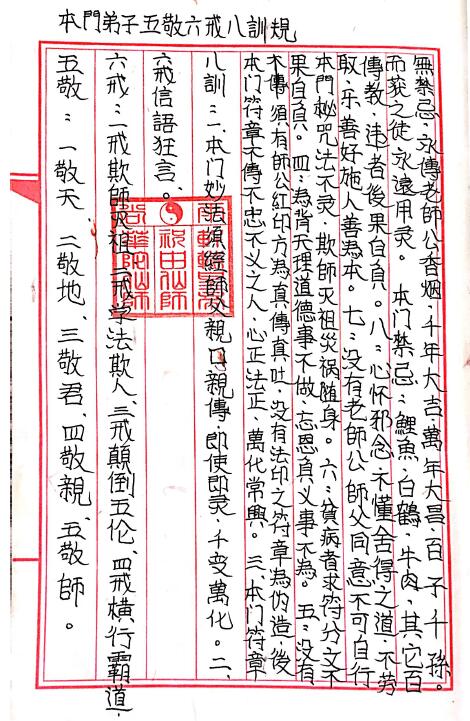 本門弟子五敬六戒八訓規
五敬：一敬天、二敬地、三敬君、四敬親、五敬師。
六戒：一戒欺師灭祖、二戒学法欺人、三戒顛倒五伦、四戒橫行霸道、
六戒信語狂言。
八訓：一、本门妙法須經師父親口親傳，即使即灵，千变萬化。二、
本门符章不傳不忠不义之人，心正法正，萬代常興。三、本门符章
不傳須有師公紅印方為真傳真吐，没有法印之符章為伪造，後
果自負。四：為背天理道德事不做，忘恩負义事不為。五：没有
本門秘咒法不灵，欺師灭祖災祸随身。六：貧病者求符分文不
取，乐善好施人善為本。七：没有老師公師父同意不可自行
傳教，违者後果自負。八：心怀邪念，不懂舍得之道，不劳
而获之徒永遠用灵。本门禁忌：鯉魚、白鶴、牛肉，其它百
無禁忌。永傳老師公香烟，千年大吉，萬年大昌，百子千孫。
祝由仙師